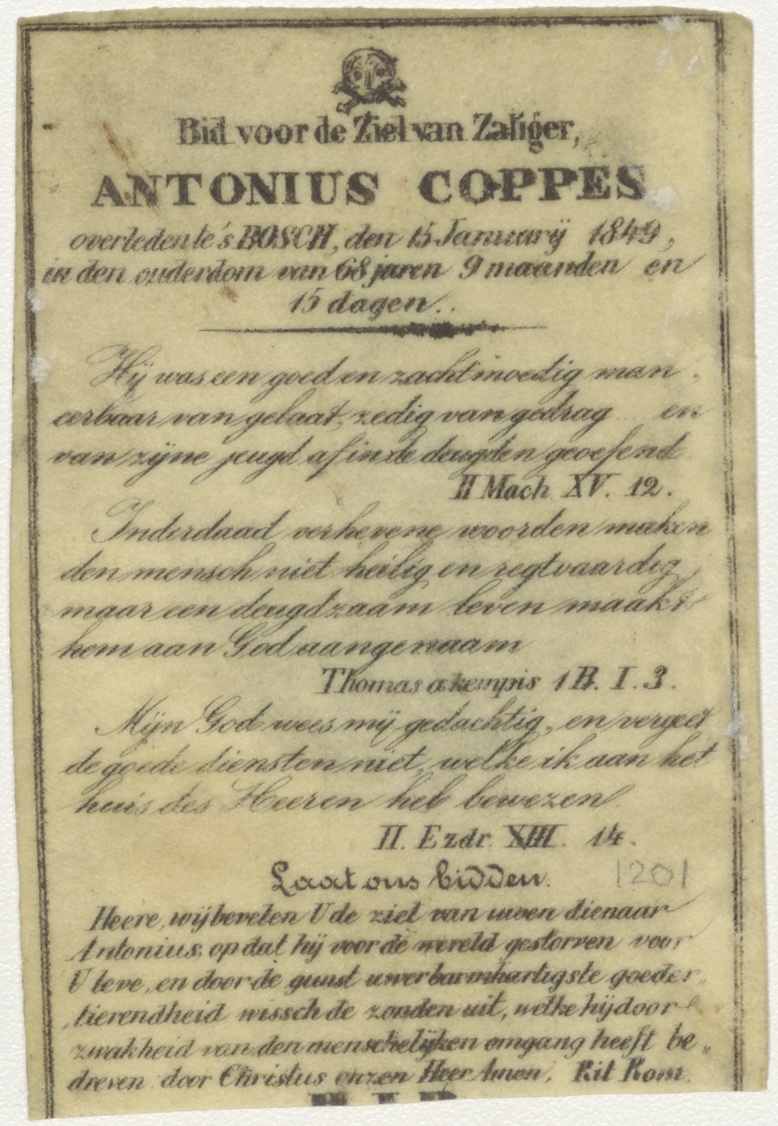 Bid voor de Ziel van Zaliger,
ANTONIUS COPPES
overleden te's BOSCH, den 15 Januarij 1849,
in den ouderdom van 68 jaren 9 maanden en
15 dagen.
Hij was een goed en zachtmoedig man
eerbaar van gelaat, zedig van gedrag en
van zijne jeugd af in de deugden geoefend
II Mach XV. 12.
Inderdaad verhevene woorden maken
den mensch niet heilig en regtvaardig
maar een deugdzaam leven maakt
hem aan God aangenaam
Thomas a kempis 1 B. I. 3.
Mijn God wees mij gedachtig, en vergeet
de goede diensten niet, welke ik aan het
huis des Heeren heb bewezen.
II. Ezdr. XIII. 14.
Laat ons bidden. 1201
Heere, wij bevelen U de ziel van uwen dienaar
Antonius, op dat hij voor de wereld gestorven voor
U leve, en door de gunst uwer barmhartigste goeder„
tierendheid wissch de zonden uit, welke hij door
zwakheid van den menschelijken omgang heeft be„
dreven door Christus onzen Heer Amen. Rit Rom.
R.I.P.